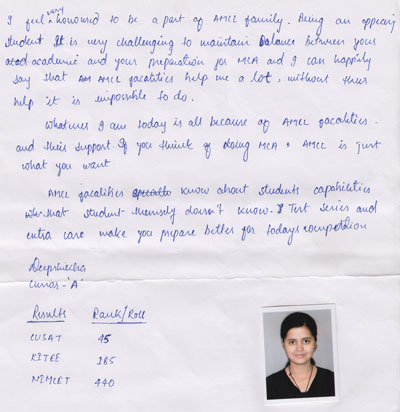 I feel very honoured to be a part of AMCL family. Being an appearing
student It is very challenging to maintain balance between your
acad academic and your preparation for MCA and I can happily
say that AM AMCL facalities help me a lot, without their
help it is impossible to do.
Whatever I am today is all because of AMCL facalities.
and their support. If you think of doing MCA, AMCL is just
what you want.
AMCL facalities know about students capabilities
that student themsely doesn't know. Test series and
extra care make you prepare better for todays competition
Deepshikha
'A'
Results Rank/Roll
CUSAT 45
KITEE 185
NIMCET 440